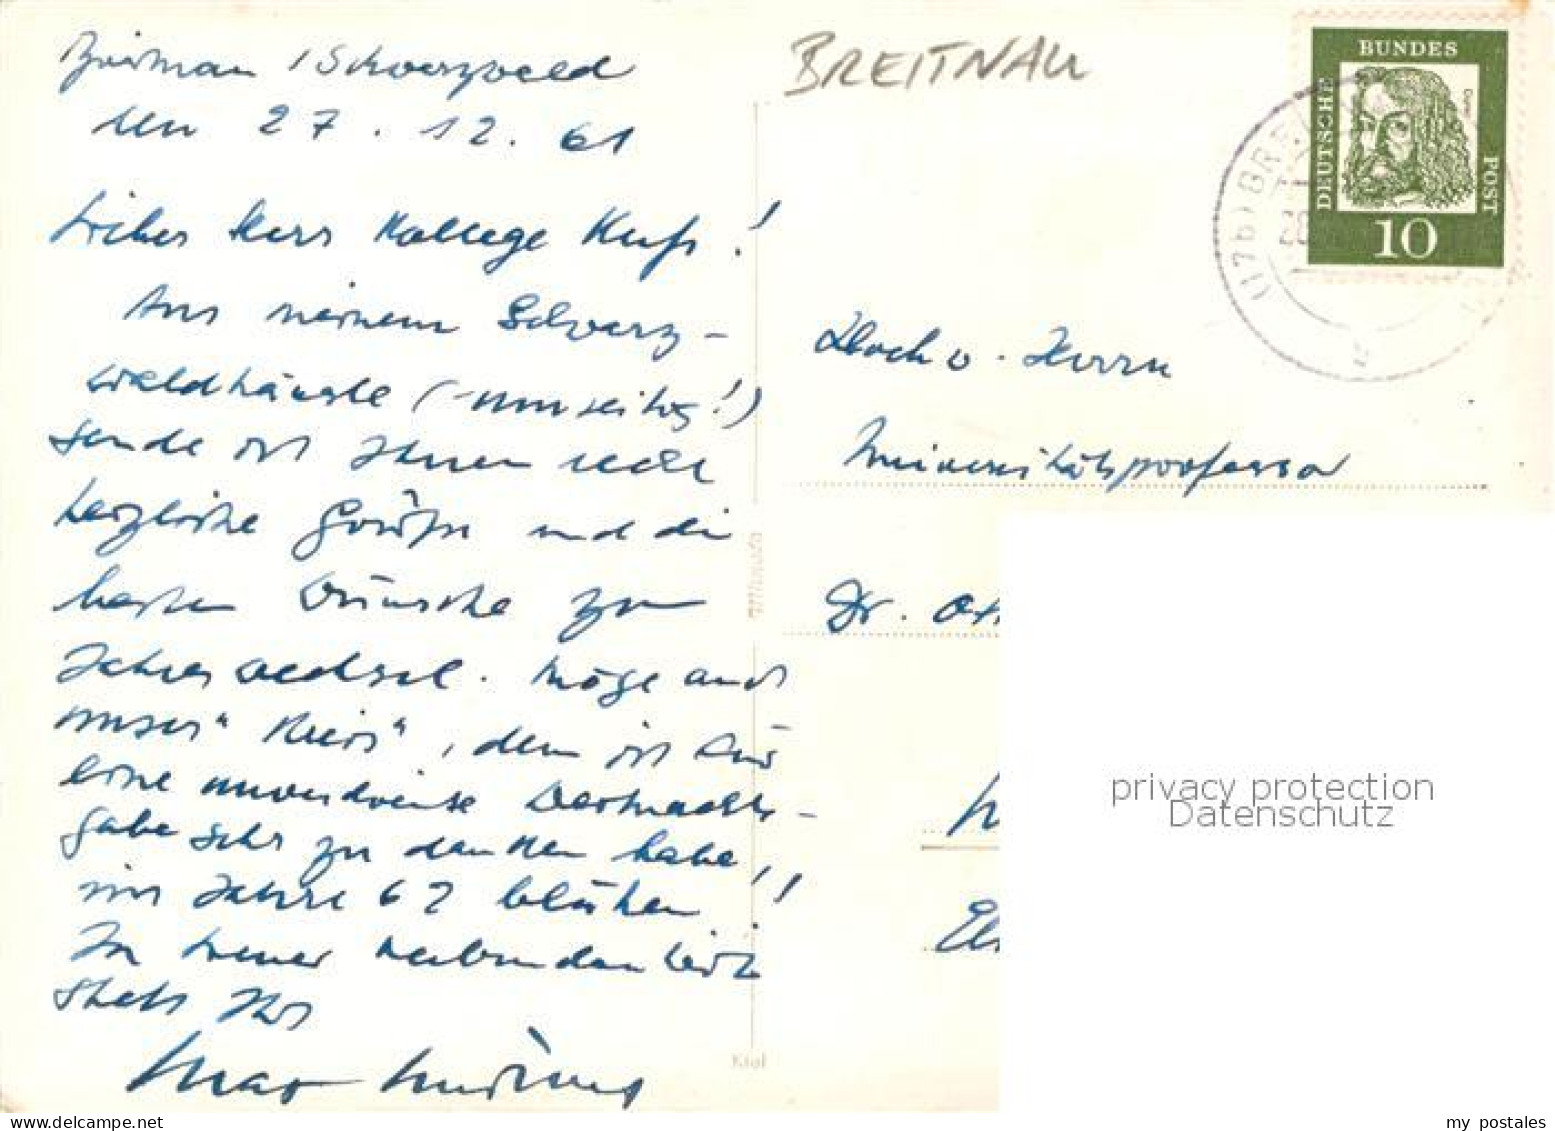 / Schwarzwald
den 27. 12. 61
Lieber Herr Kollege !
Aus meinem Schwarz-
waldhäusle ( umseitig! )
sende ich Ihnen recht
herzliche Grüße und die
besten Wünsche zum
Jahreswechsel. Möge auch
unser "Kreis", dem ich für
eine unverdiente Weihnachts-
gabe sehr zu danken habe,
im Jahre 62 blühen!!
In treuer Verbundenheit
stets Ihr
Max
BREITNAU
DEUTSCHE
BUNDES
POST
10
Dürer
(17b) BREI
Hoch v. Herrn
Universitätsprofessor
Dr.
privacy protection
Datenschutz
Kiel
my postales